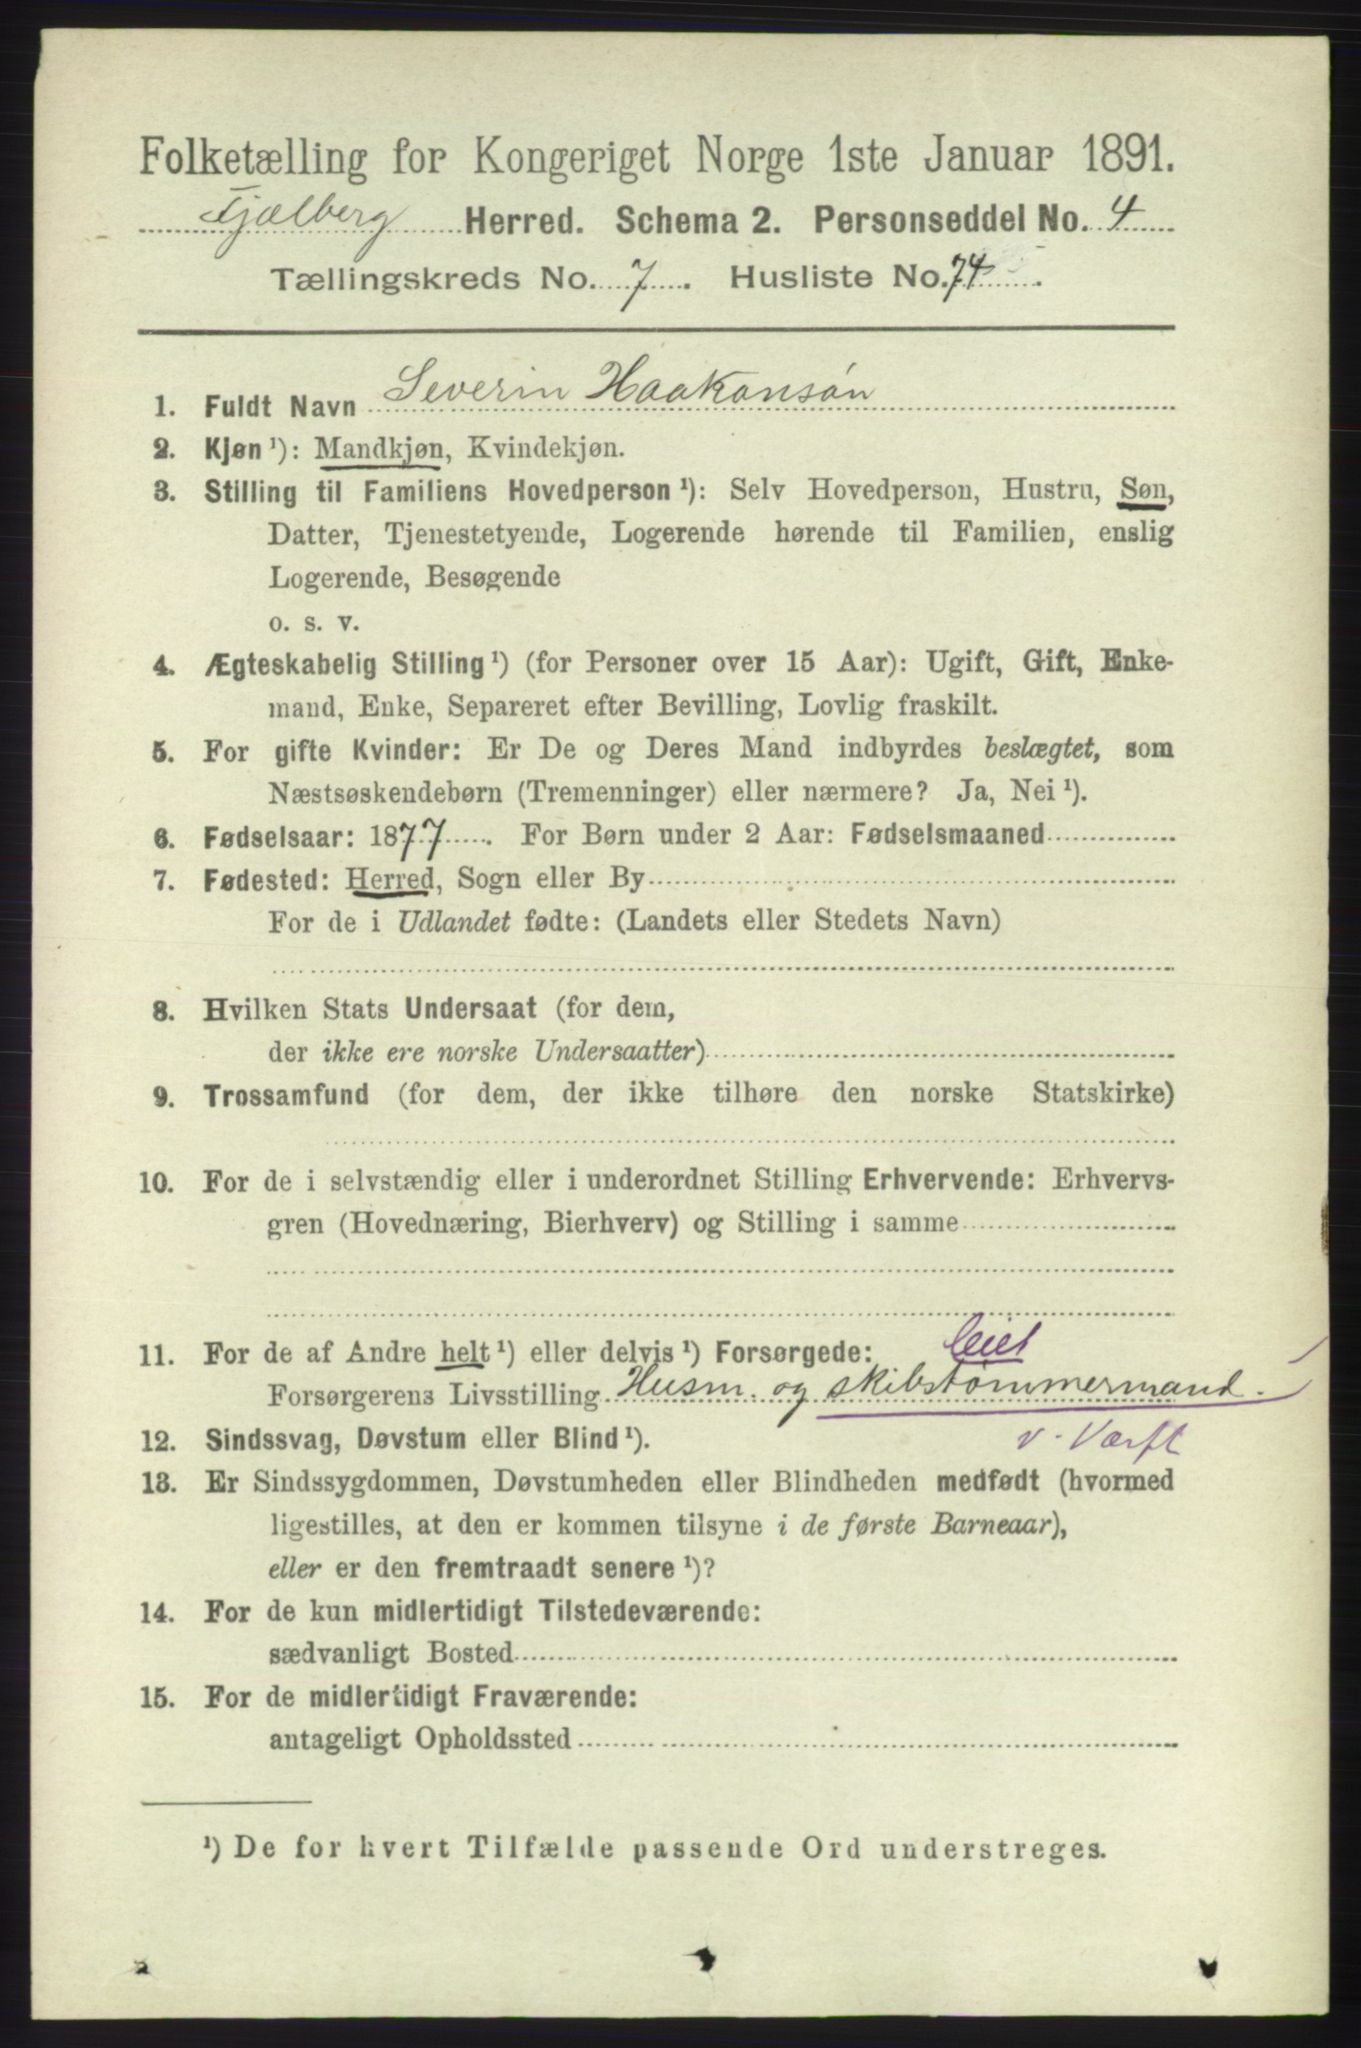 Folketælling for Kongeriget Norge 1ste Januar 1891.
Fjælberg Herred. Schema 2. Personseddel No. 4
Tællingskreds No. 7. Husliste No. 74.
1. Fuldt Navn Severin Haakonsøn
2. Kjøn ¹): Mandkjøn, Kvindekjøn.
3. Stilling til Familiens Hovedperson ¹): Selv Hovedperson, Hustru, Søn,
Datter, Tjenestetyende, Logerende hørende til Familien, enslig
Logerende, Besøgende
o. s. v.
4. Ægteskabelig Stilling ¹) (for Personer over 15 Aar): Ugift, Gift, Enke-
mand, Enke, Separeret efter Bevilling, Lovlig fraskilt.
5. For gifte Kvinder: Er De og Deres Mand indbyrdes beslægtet, som
Næstsøskendebørn (Tremenninger) eller nærmere? Ja, Nei ¹).
6. Fødselsaar: 1877. For Børn under 2 Aar: Fødselsmaaned
7. Fødested: Herred, Sogn eller By
For de i Udlandet fødte: (Landets eller Stedets Navn)
8. Hvilken Stats Undersaat (for dem,
der ikke ere norske Undersaatter)
9. Trossamfund (for dem, der ikke tilhøre den norske Statskirke)
10. For de i selvstændig eller i underordnet Stilling Erhvervende: Erhvervs-
gren (Hovednæring, Bierhverv) og Stilling i samme
11. For de af Andre helt ¹) eller delvis ¹) Forsørgede:
Forsørgerens Livsstilling Husm. og skibstømmermand.
v. Værft
12. Sindssvag, Døvstum eller Blind ¹).
13. Er Sindssygdommen, Døvstumheden eller Blindheden medfødt (hvormed
ligestilles, at den er kommen tilsyne i de første Barneaar),
eller er den fremtraadt senere ¹)?
14. For de kun midlertidigt Tilstedeværende:
sædvanligt Bosted
15. For de midlertidigt Fraværende:
antageligt Opholdssted
¹) De for hvert Tilfælde passende Ord understreges.